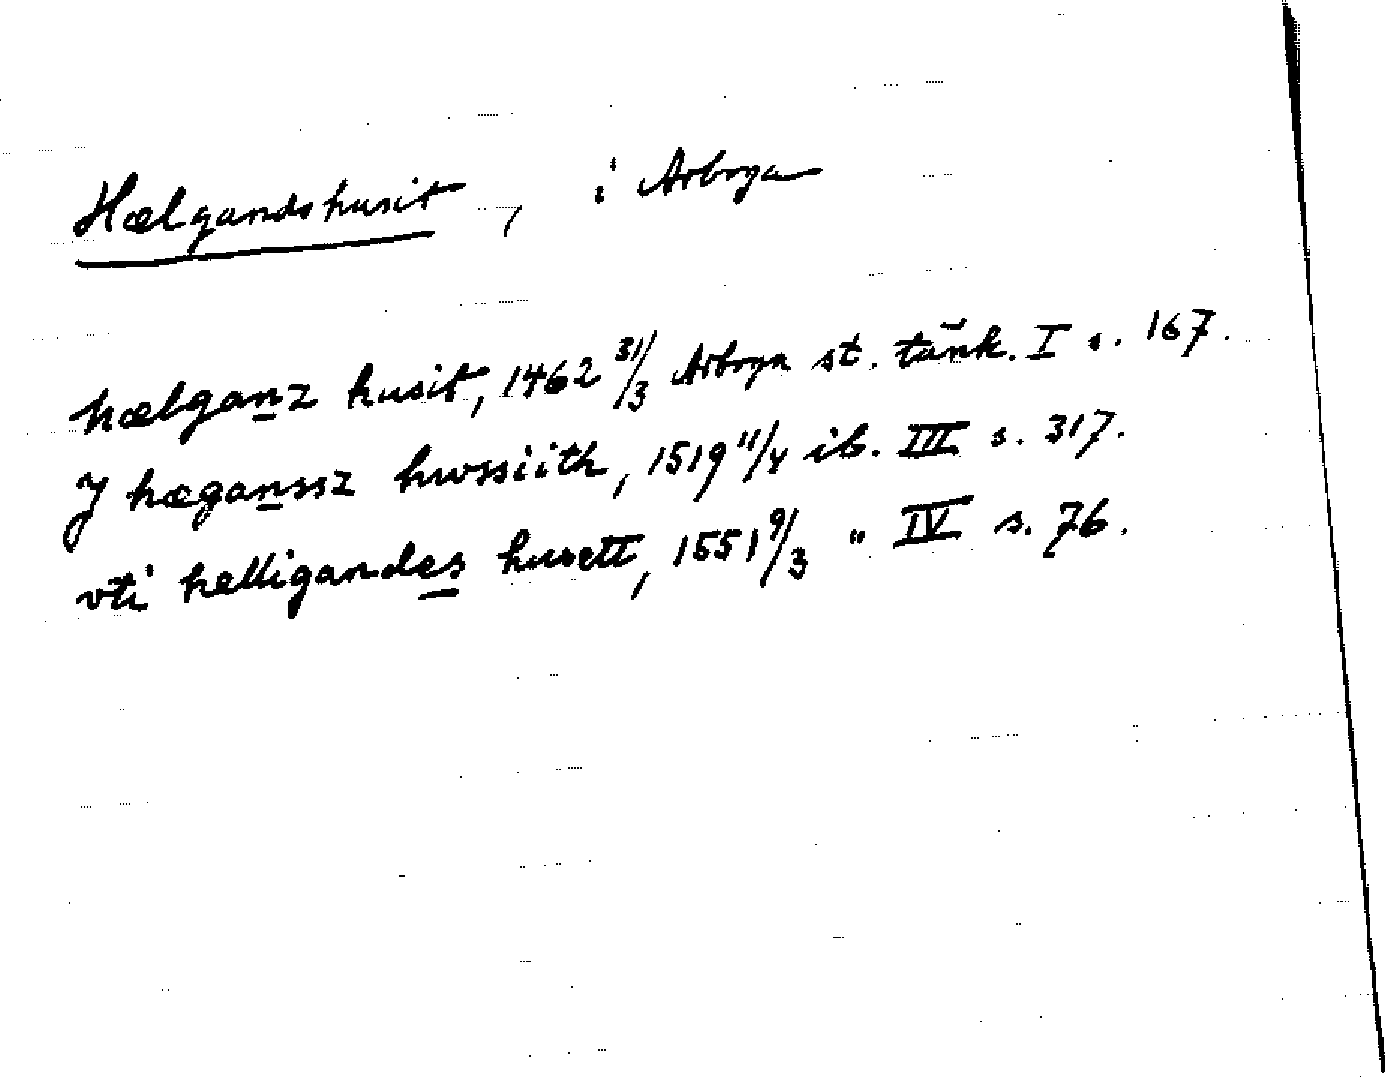 Hælgandshusit, i Arboga
hælganz husit, 1462 31/3 Arboga st. tänk. I s. 167.
J hæganssz hwssiith, 1519 11/4 ib. III s. 317.
vti helligandes husett, 1551 9/3 " IV s. 76.